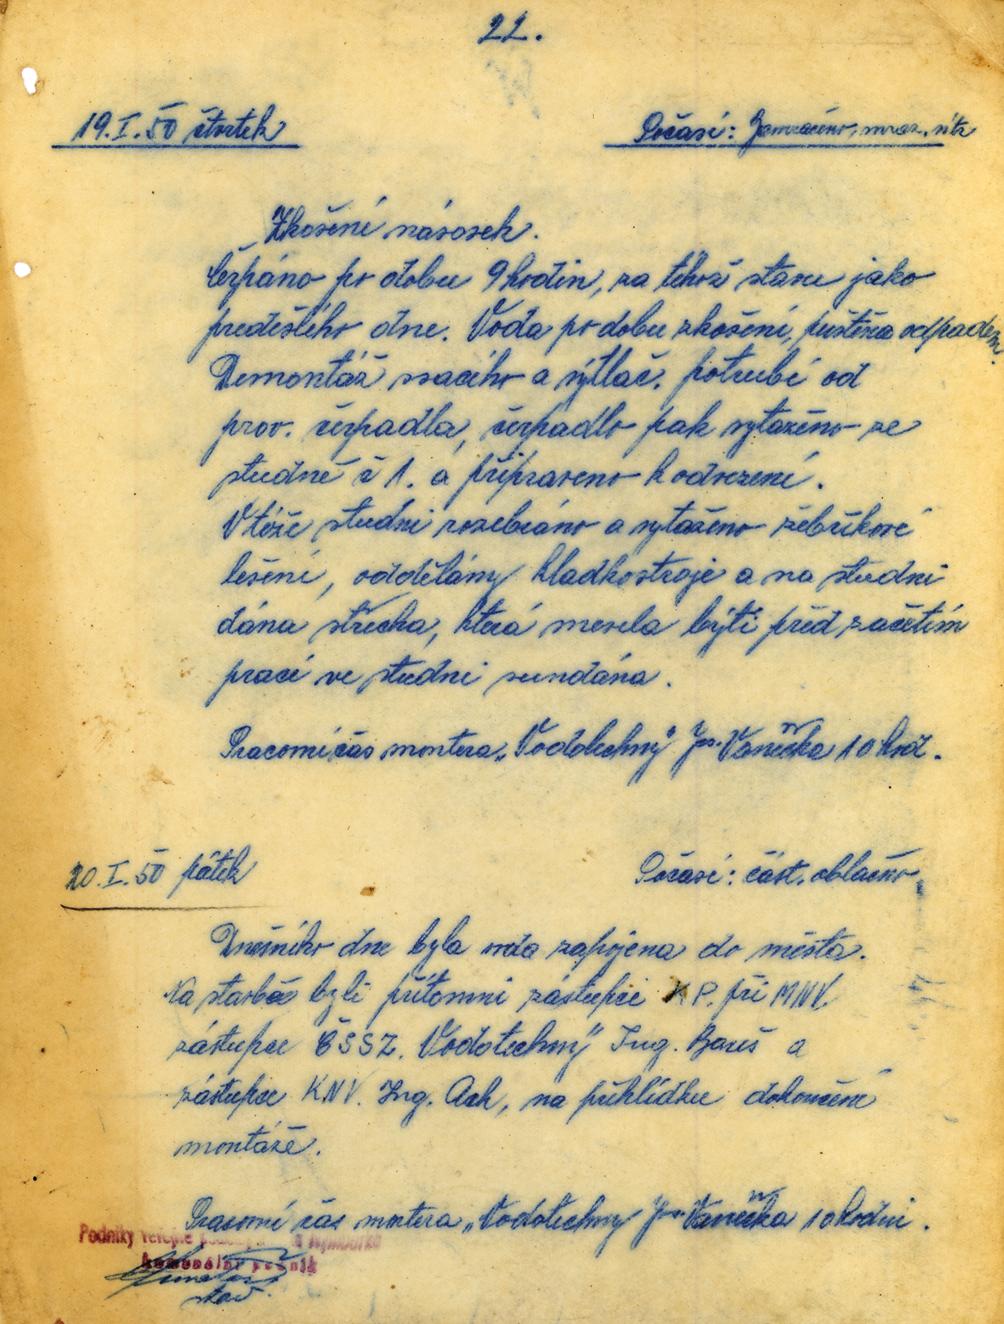 22.
19.I.50 čtvrtek
Počasí: Zamračeno, mraz.
Zkošení násosek.
Čerpáno po dobu 9 hodin, za téhož stavu jako
předešlého dne. Voda po dobu zkošení, puštěna odpadem.
Demontáž ssacího a výtlač. potrubí od
prov. čerpadla, čerpadlo pak vytaženo ze
studně č 1. a připraveno k odvezení.
V téže studni rozebráno a vytaženo žebříkové
lešení, oddělány kladkostroje a na studni
dána střecha, která musela býti před začetím
prací ve studni sundána.
Pracovní čas montera „Vodotechny" Jos. Vaněčka 10 hod.
20.I.50 pátek
Počasí: část. oblačno
Dnešního dne byla voda zapojena do města.
Na stavbě byli přítomni zástupci K P. při MNV.
zástupce ČSSZ. Vodotechny" Ing. Bareš a
zástupce KNV. Ing. Ach, na přehlídku dokončené
montáže.
Pracovní čas montera „Vodotechny Jos. Vaněčka 10 hodin.
Podniky veřejné
Komunální podnik
stav.